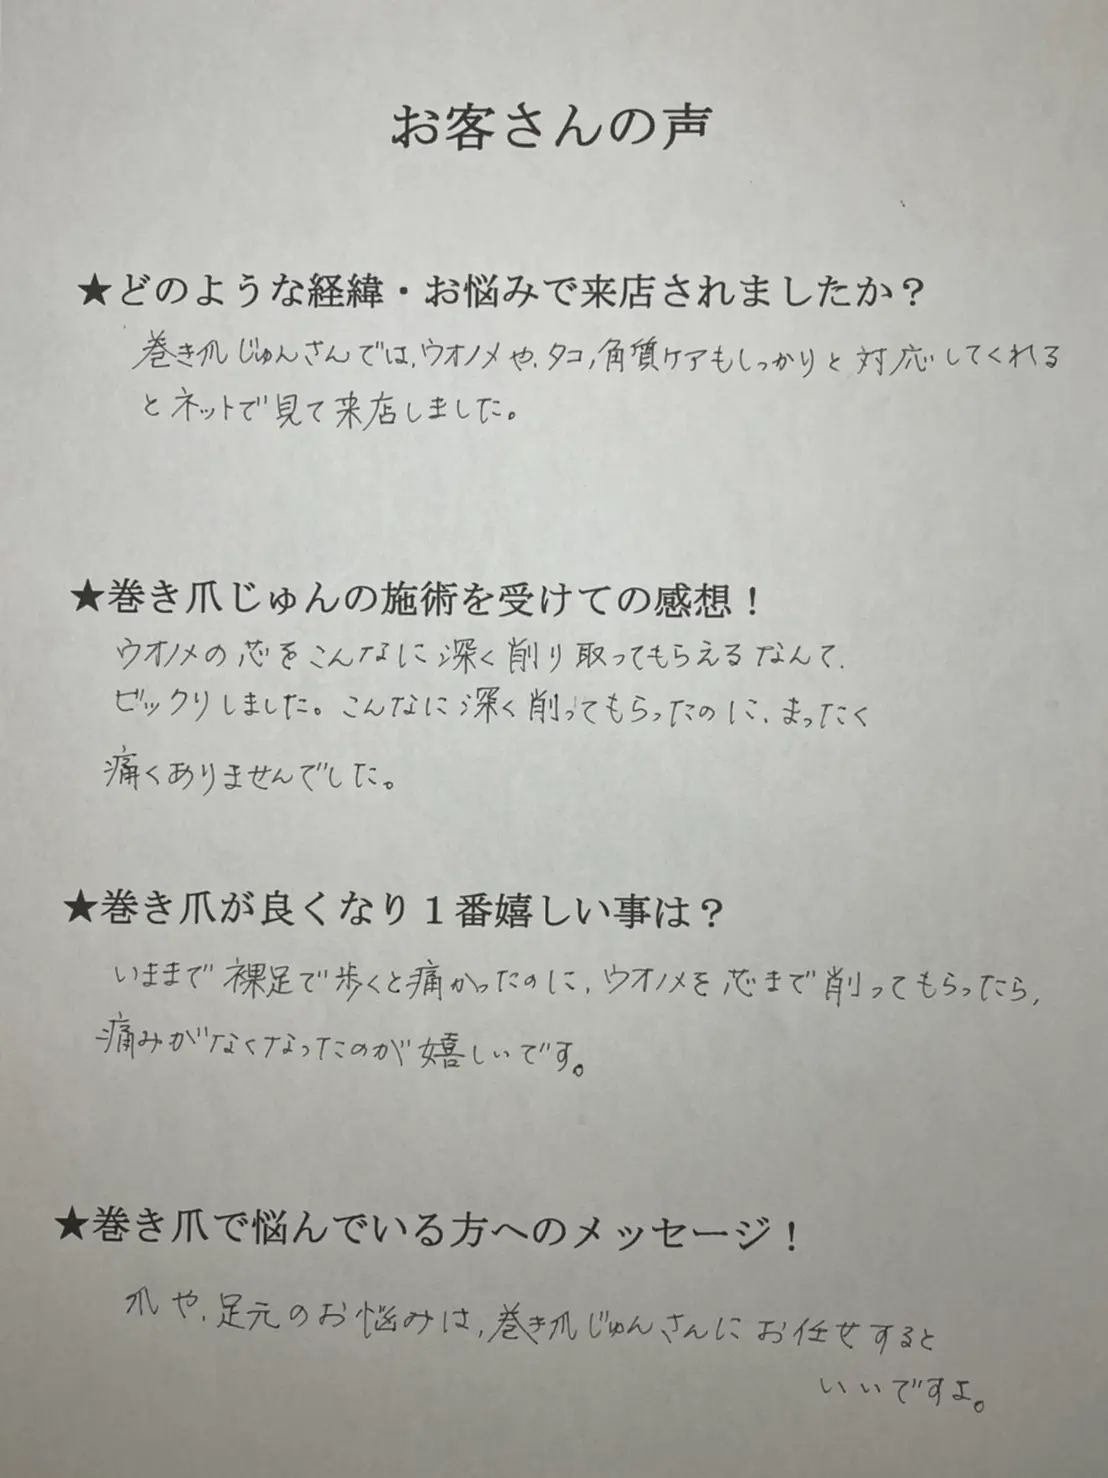 お客さんの声
★どのような経緯・お悩みで来店されましたか？
巻き爪じゅんさんでは、ウオノメや、タコ、角質ケアもしっかりと対応してくれる
とネットで見て来店しました。
★巻き爪じゅんの施術を受けての感想！
ウオノメの芯をこんなに深く削り取ってもらえるなんて、
ビックリしました。こんなに深く削ってもらったのに、まったく
痛くありませんでした。
★巻き爪が良くなり１番嬉しい事は？
いままで裸足で歩くと痛かったのに、ウオノメを芯まで削ってもらったら、
痛みがなくなったのが嬉しいです。
★巻き爪で悩んでいる方へのメッセージ！
爪や、足元のお悩みは、巻き爪じゅんさんにお任せすると
いいですよ。